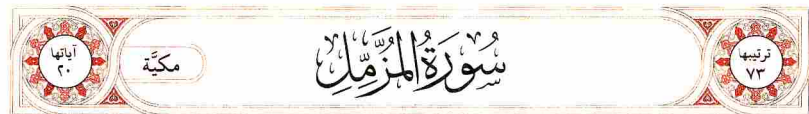 ترتيبها
٧٣
سُورَةُ المُزَّمِّلِ
مكيَّة
آياتها
٢٠